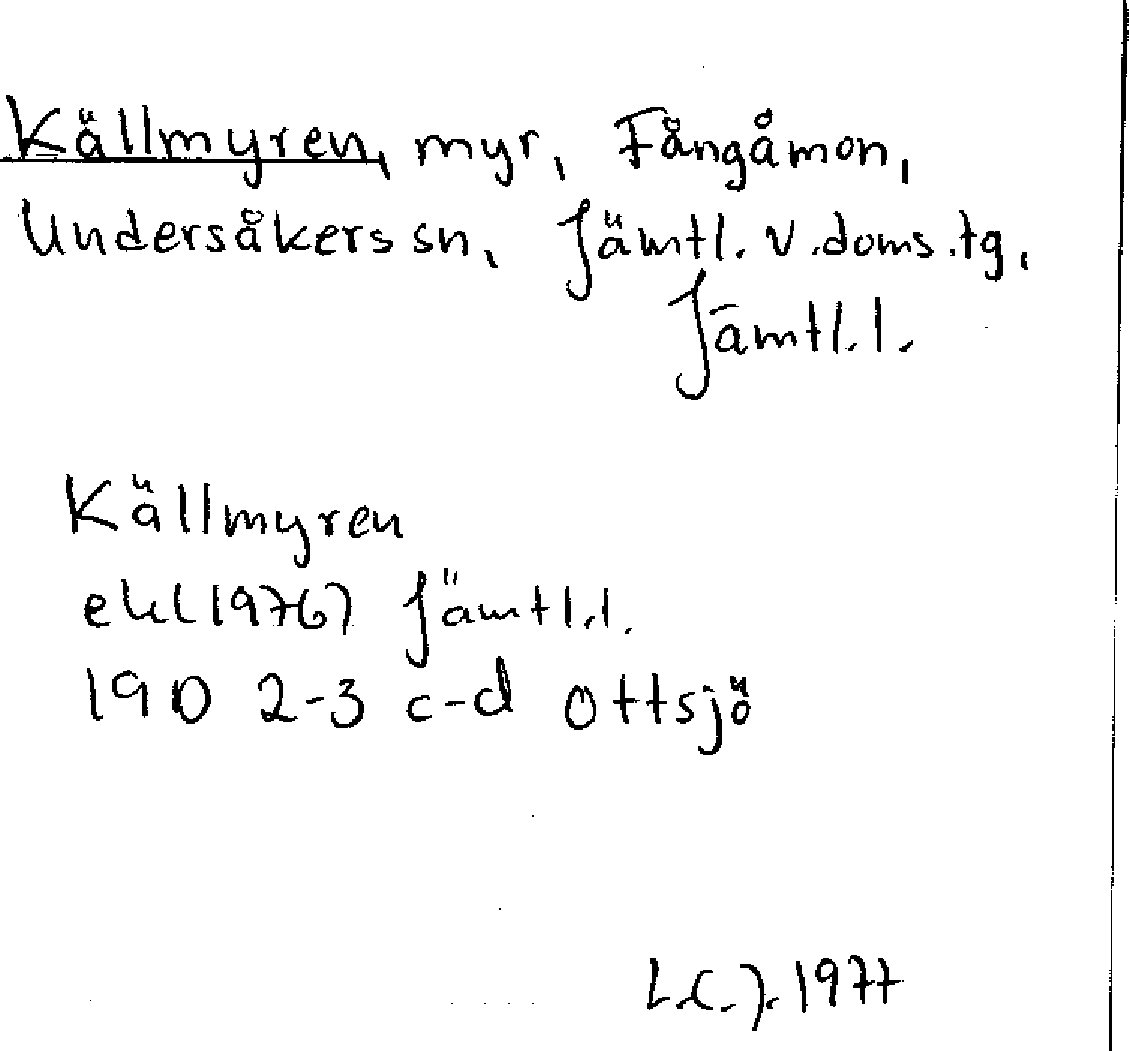 Källmyren, myr, Fångåmon,
Undersåkers sn, Jämtl. v. doms. tg,
Jämtl. l.
Källmyren
ekl (1976) Jämtl. l.
19D 2-3 c-d Ottsjö
L.C.J. 1977